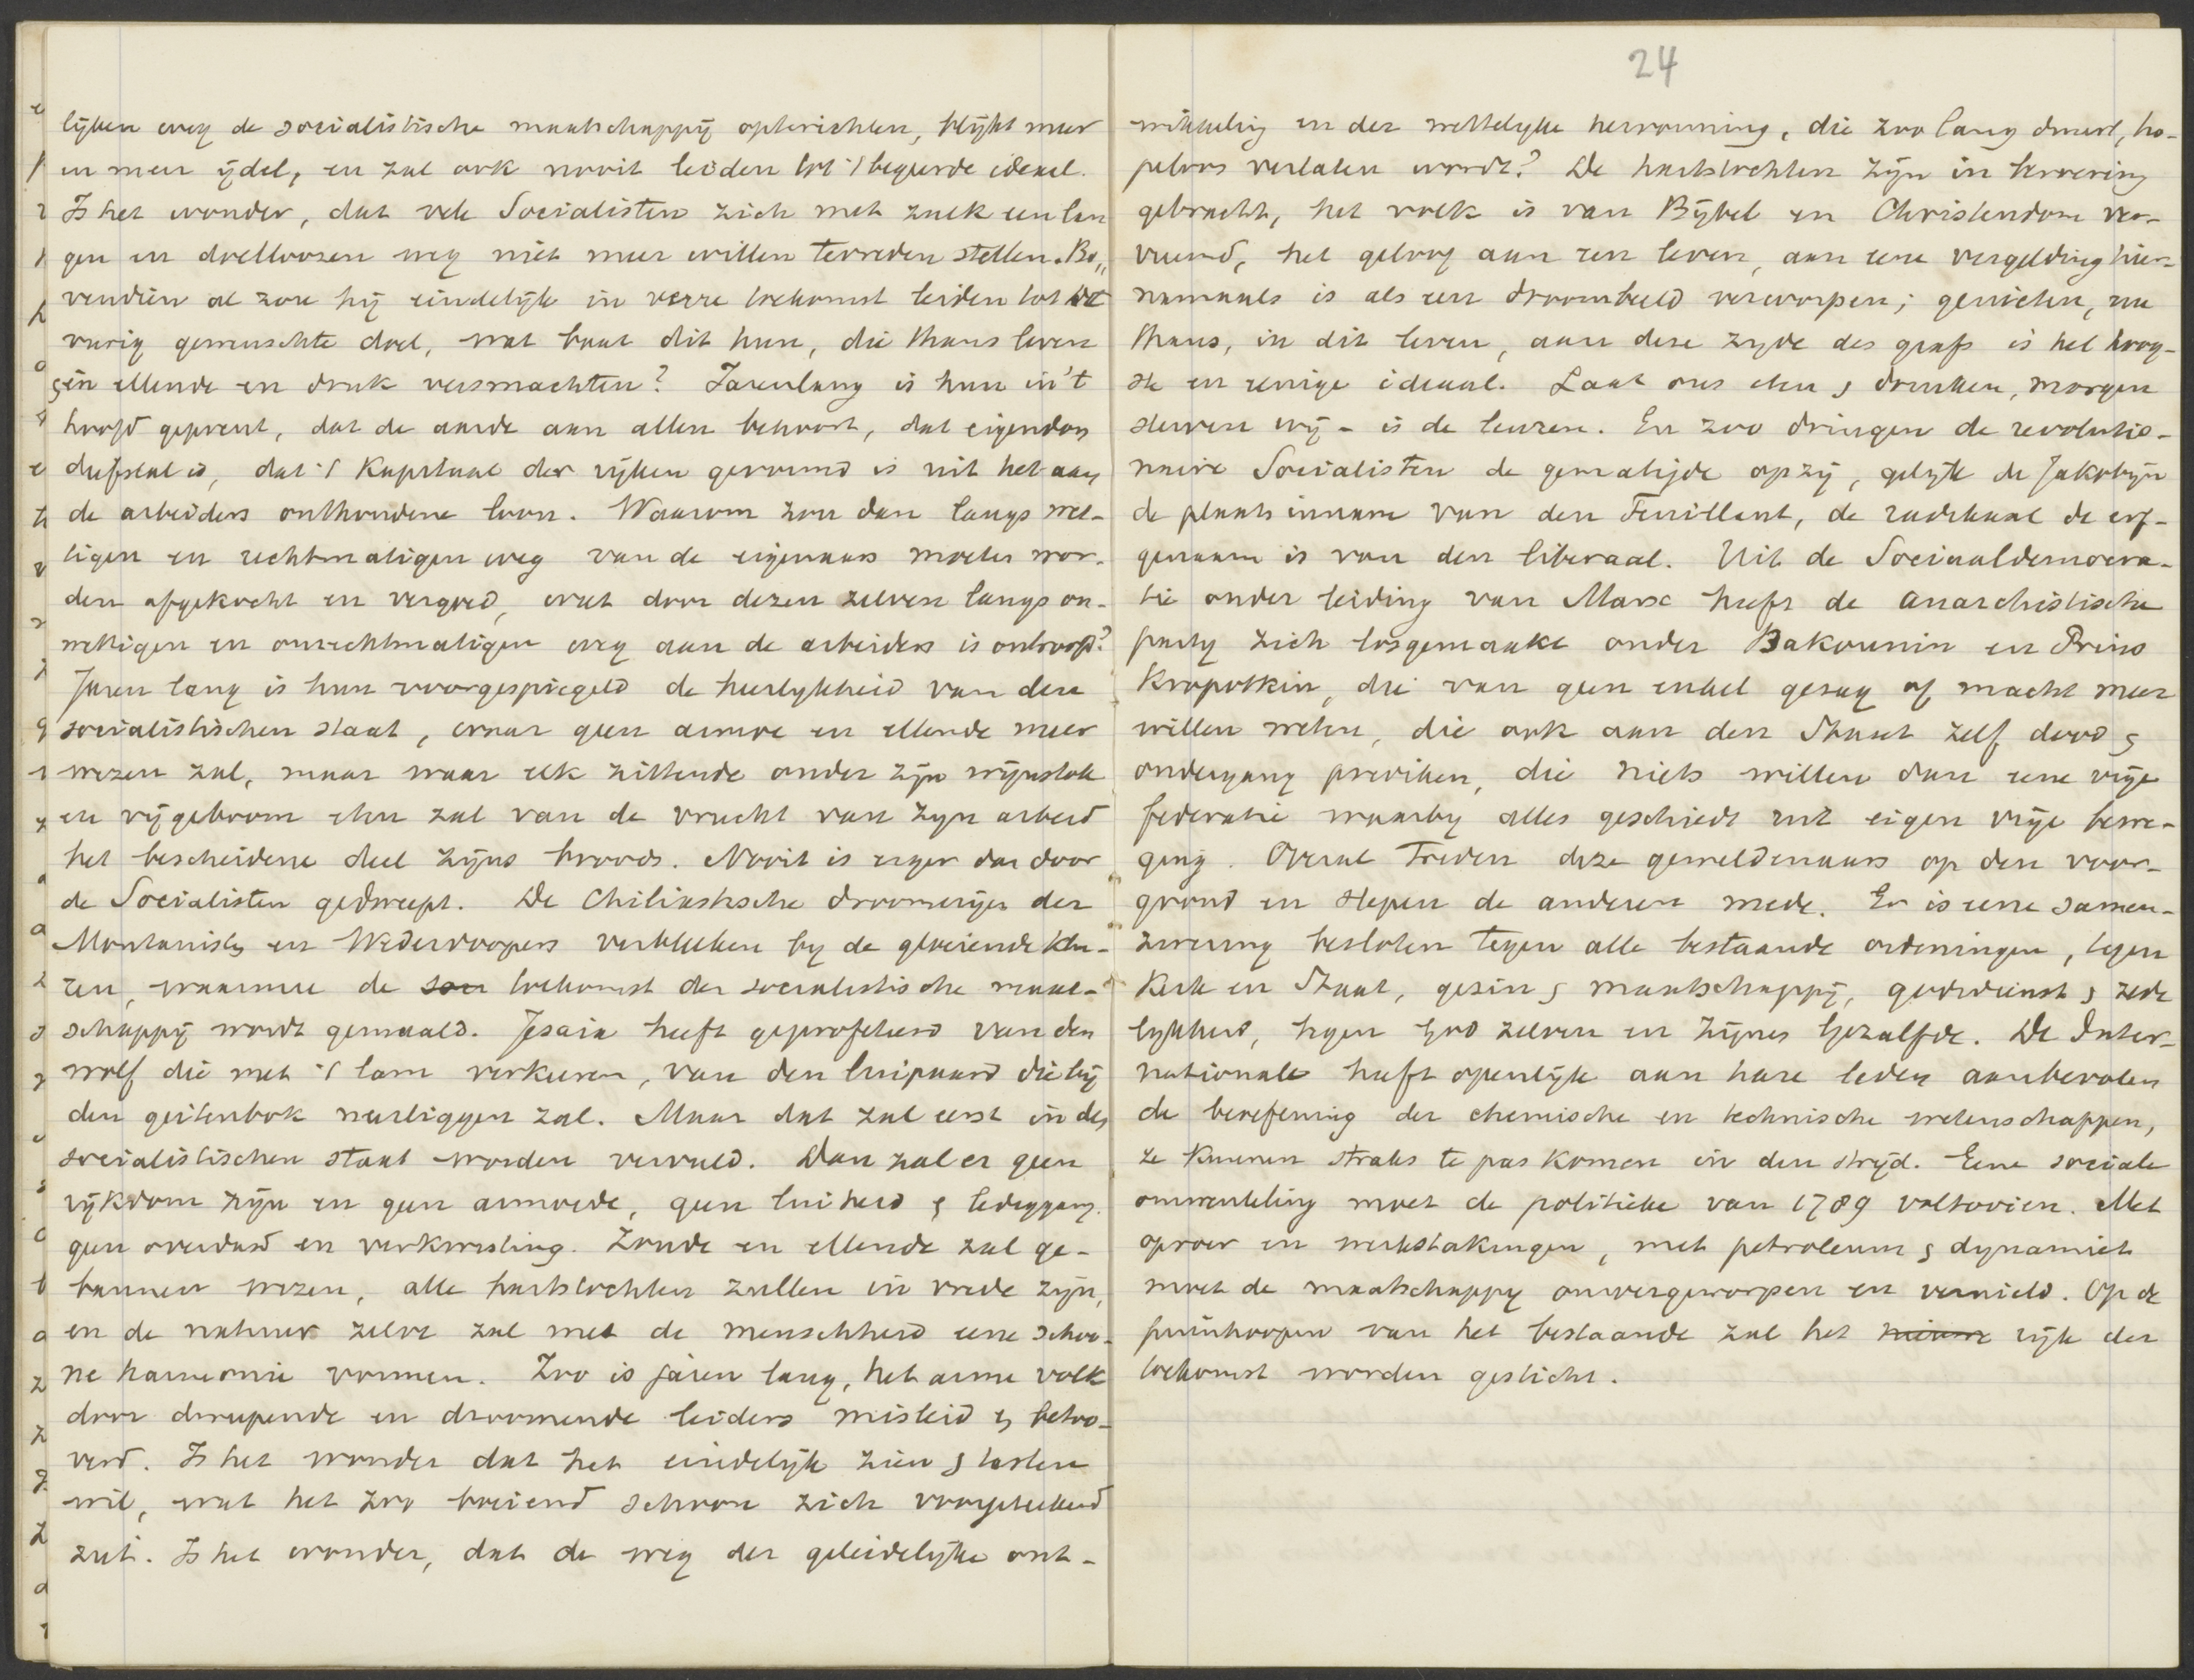 lijken weg de socialistische maatschappij opterichten, blijkt meer
en meer ijdel, en zal ook nooit leiden tot 't begeerde ideaal.
Is het wonder, dat vele Socialisten zich met zulk een lan
gen en doelloozen weg niet meer willen tevreden stellen. Bo„
vendien al zou hij eindelijk in verre toekomst leiden tot het
vurig gewenschte doel, wat baat dit hun, die thans leven
& in ellende en druk versmachten? Jarenlang is hun in 't
hoofd geprent, dat de aarde aan allen behoort, dat eigendom
diefstal is, dat 't Kapitaal der rijken gevormd is uit het aan
de arbeiders onthoudene loon. Waarom zou dan langs wet-
tigen en rechtmatigen weg van de eigenaars moeten wor-
den afgekocht en vergoed, wat door dezen zelven langs on-
wettigen en onrechtmatigen weg aan de arbeiders is ontroofd?
Jaren lang is hun voorgespiegeld de heerlykheid van den
socialistischen staat, waar geen armoe en ellende meer
wezen zal, maar waar elk zittende onder zijn wijnstok
en vijgeboom eten zal van de vrucht van zijn arbeid
het bescheidene deel zijns broods. Nooit is erger dan door
de Socialisten gedweept. De Chiliastische droomerijen der
Montanisten en Wederdoopers verbleeken by de gloeiende kleu-
ren, waarmee de toekomst der socialistische maat-
schappij wordt gemaald. Jesaia heeft geprofeteerd van den
wolf die met 't lam verkeeren, van den luipaard die bij
den geitenbok neerliggen zal. Maar dat zal eerst in den
socialistischen staat worden vervuld. Dan zal er geen
rijkdom zijn en geen armoede, geen luiheid & lediggang.
geen overdaad en verkwisting. Zonde en ellende zal ge-
bannen wezen, alle hartstochten zullen in vrede zijn,
en de natuur zelve zal met de menschheid eene schoo-
ne harmonie vormen. Zoo is jaren lang, het arme volk
door dweepende en droomende leiders misleid & betoo-
verd. Is het wonder dat het eindelijk zien & tasten
wil, wat het zoo boeiend schoon zich voorgeteekend
ziet. Is het wonder, dat de weg der geleidelijke ont-
24
wikkeling en der wettelyke hervorming, die zoo lang duurt, ho-
peloos verlaten wordt? De hartstochten zijn in beroering
gebracht, het volk is van Bijbel en Christendom ver-
vreemd, het geloof aan een leven, aan eene vergelding hier-
namaals is als een droombeeld verworpen; genieten, nu
thans, in dit leven, aan deze zyde des grafs is het hoog-
ste en eenige ideaal. Laat ons eten & drinken, morgen
sterven wij - is de leuze. En zoo dringen de revolutio-
naire Socialisten de gematigde opzij, gelijk de Jakobijn
de plaats innam van den Feuillant, de radikaal de erf-
genaam is van den liberaal. Uit de Sociaaldemocra-
tie onder leiding van Marx heeft de anarchistische
party zich losgemaakt onder Bakounin en Prins
Kropotkin, die van geen enkel gezag of macht meer
willen weten, die ook aan den Staat zelf dood &
ondergang prediken, die niets willen dan eene vrije
federatie waarby alles geschiedt uit eigen vrije bewe-
ging. Overal treden deze geweldenaars op den voor-
grond en slepen de anderen mede. Er is eene samen-
zwering besloten tegen alle bestaande ordeningen, tegen
Kerk en Staat, gezin & maatschappij, godsdienst & zede
lykheid, tegen God zelven en Zijnen Gezalfde. De Inter-
nationale heeft openlijk aan hare leden aanbevolen
de beoefening der chemische en technische wetenschappen,
ze kunnen straks te pas komen in den strijd. Eene sociale
omwenteling moet de politieke van 1789 voltooien. Met
oproer en werkstakingen, met petroleum & dynamiet
moet de maatschappy omvergeworpen en vernield. Op de
puinhoopen van het bestaande zal het nieuwe rijk der
toekomst worden gesticht.